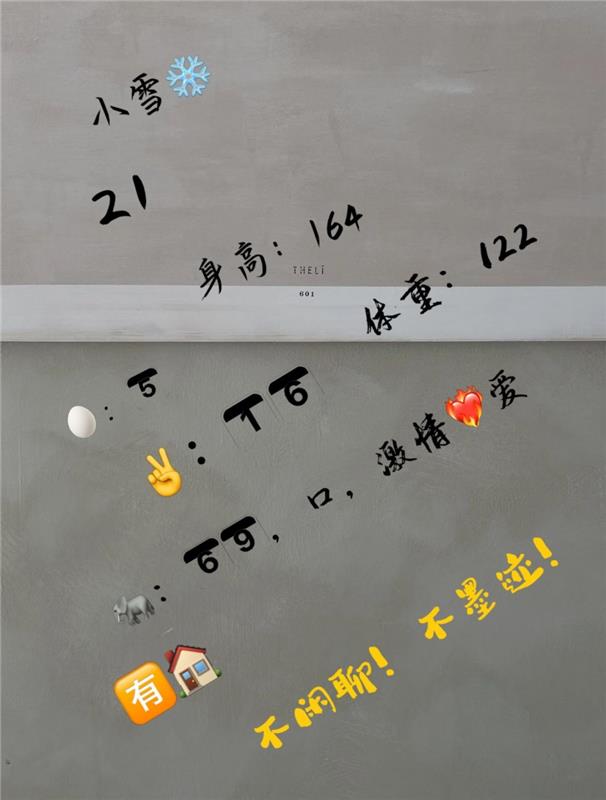 小雪❄️
21
身高：164
THELI
601
体重：122
🥚：5
✌️：16
🐘：69，口，激情❤️‍🔥爱
🈶🏠
不闲聊！不墨迹！